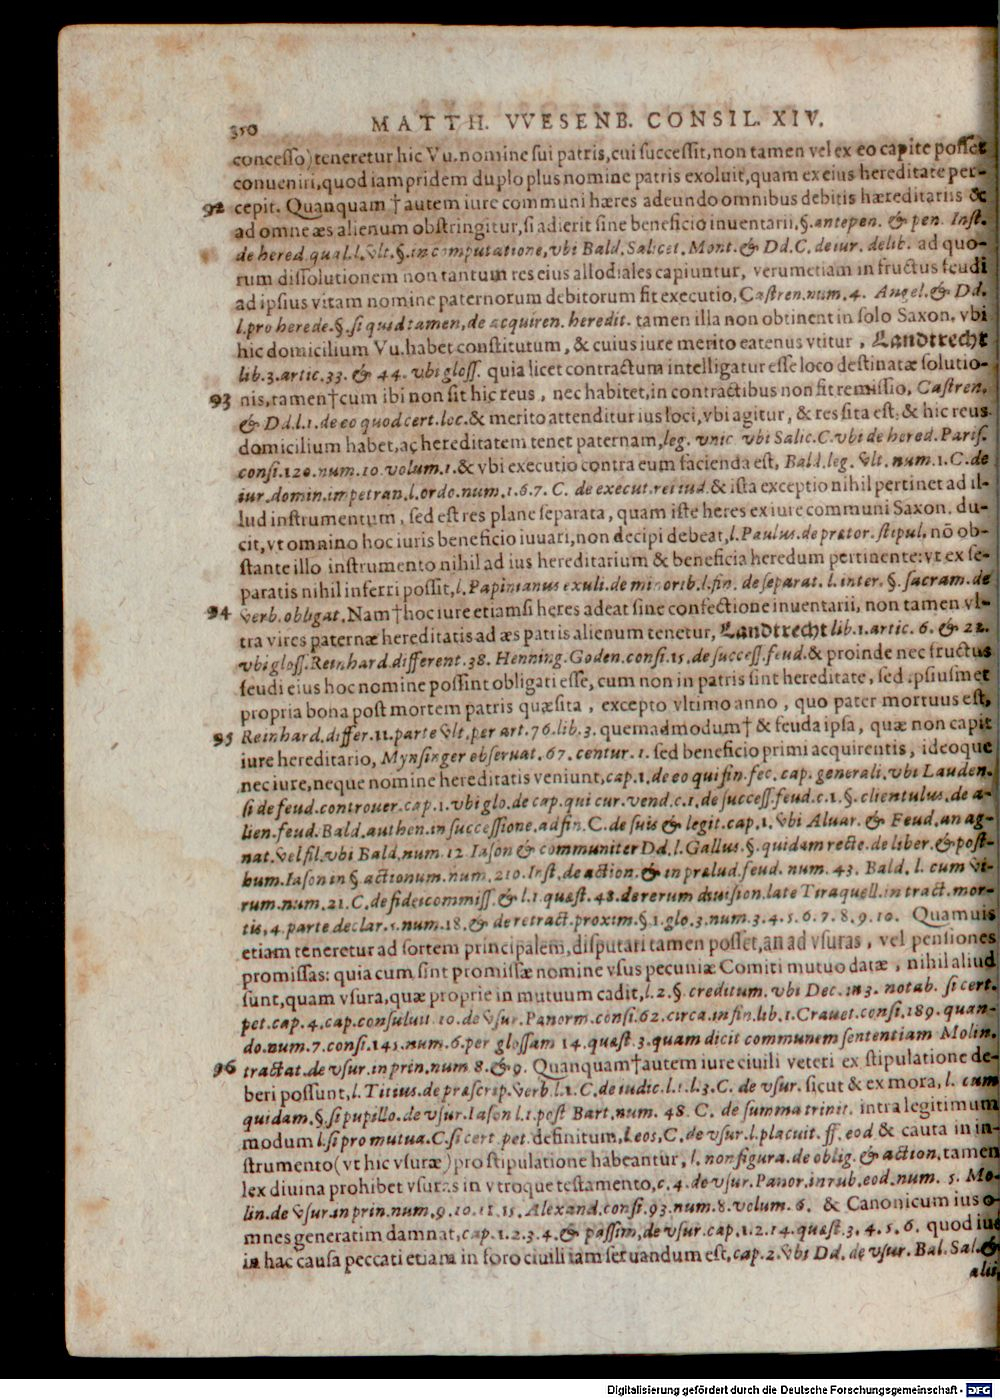 350 MATTH. VVESENB. CONSIL. XIV.
concesso) teneretur hic Vu. nomine sui patris, cui successit, non tamen vel ex eo capite posset
conueniri, quod iampridem duplo plus nomine patris exoluit, quam ex eius hereditate per-
92 cepit. Quanquam † autem iure communi hæres adeundo omnibus debitis hæreditariis &
ad omne æs alienum obstringitur, si adierit sine beneficio inuentarii, §. antepen. & pen. Inst.
de hered. qual. l. vlt. §. in computatione, vbi Bald. Salicet. Mont. & Dd. C. de iur. delib. ad quo-
rum dissolutionem non tantum res eius allodiales capiuntur, verumetiam in fructus feudi
ad ipsius vitam nomine paternorum debitorum fit executio, Castren. num. 4. Angel. & Dd.
l. pro herede. §. si quid tamen, de acquiren. heredit. tamen illa non obtinent in solo Saxon. vbi
hic domicilium Vu. habet constitutum, & cuius iure merito eatenus vtitur, Landtrecht
lib. 3. artic. 33. & 44. vbi gloss. quia licet contractum intelligatur esse loco destinatæ solutio-
93 nis, tamen † cum ibi non sit hic reus, nec habitet, in contractibus non fit remissio, Castren.
& Dd. l. 1. de eo quod cert. loc. & merito attenditur ius loci, vbi agitur, & res sita est, & hic reus
domicilium habet, ac hereditatem tenet paternam, leg. vnic vbi Salic. C. vbi de hered. Paris.
consi. 120. num. 10. volum. 1. & vbi executio contra eum facienda est, Bald. leg. vlt. num. 1. C. de
iur. domin. impetran. l. ordo. num. 1. 6. 7. C. de execut. rei iud. & ista exceptio nihil pertinet ad il-
lud instrumentum, sed est res plane separata, quam iste heres ex iure communi Saxon. du-
cit, vt omnino hoc iuris beneficio iuuari, non decipi debeat, l. Paulus. de prætor. stipul. nõ ob-
stante illo instrumento nihil ad ius hereditarium & beneficia heredum pertinente: vt ex se-
paratis nihil inferri possit, l. Papinianus exuli. de minorib. l. fin. de separat. l. inter. §. sacram. de
94 verb. obligat. Nam † hoc iure etiamsi heres adeat sine confectione inuentarii, non tamen vl-
tra vires paternæ hereditatis ad æs patris alienum tenetur, Landtrecht lib. 1. artic. 6. & 22.
vbi gloss. Reinhard. different. 38. Henning. Goden. consi. 15. de success. feud. & proinde nec fructus
feudi eius hoc nomine possint obligati esse, cum non in patris sint hereditate, sed ipsiusmet
propria bona post mortem patris quæsita, excepto vltimo anno, quo pater mortuus est,
95 Reinhard. differ. 11. parte vlt. per art. 76. lib. 3. quemadmodum † & feuda ipsa, quæ non capit
iure hereditario, Mynsinger obseruat. 67. centur. 1. sed beneficio primi acquirentis, ideoque
nec iure, neque nomine hereditatis veniunt, cap. 1. de eo qui fin. fec. cap. generali. vbi Lauden.
si de feud. controuer. cap. 1. vbi glo. de cap. qui cur. vend. c. 1. de success. feud. c. 1. §. clientulus. de a-
lien. feud. Bald. authen. in successione. ad fin. C. de suis & legit. cap. 1. vbi Aluar. & Feud. an ag-
nat. vel fil. vbi Bald. num. 12 Iason & communiter Dd. l. Gallus. §. quidam recte. de liber. & post-
hum. Iason in §. actionum. num. 210. Inst. de action. & in prælud. feud. num. 43. Bald. l. cum vi-
rum. num. 21. C. de fideicommiss. & l. 1. quæst. 48. de rerum diuision. late Tiraquell. in tract. mor-
tis, 4. parte declar. 5. num. 18. & de retract. proxim. §. 1. glo. 3. num. 3. 4. 5. 6. 7. 8. 9. 10. Quamuis
etiam teneretur ad sortem principalem, disputari tamen posset, an ad vsuras, vel pensiones
promissas: quia cum sint promissæ nomine vsus pecuniæ Comiti mutuo datæ, nihil aliud
sunt, quam vsura, quæ proprie in mutuum cadit, l. 2. §. creditum. vbi Dec. in 3. notab. si cert.
pet. cap. 4. cap. consuluit 10. de vsur. Panorm. consi. 62. circa in fin. lib. 1. Crauet. consi. 189. quan-
do. num. 7. consi. 145. num. 6. per glossam 14. quæst. 3. quam dicit communem sententiam Molin.
96 tractat. de vsur. in prin. num 8. & 9. Quanquam † autem iure ciuili veteri ex stipulatione de-
beri possunt, l. Titius. de præscrip. verb. l. 1. C. de iudic. l. 1. l. 3. C. de vsur. sicut & ex mora, l. cum
quidam. §. si pupillo. de vsur. Iason l. 1. post Bart. num. 48. C. de summa trinit. intra legitimum
modum l. si pro mutua. C. si cert. pet. definitum, l. eos, C. de vsur. l. placuit. ff. eod & cauta in in-
strumento (vt hic vsuræ) pro stipulatione habeantur, l. non figura. de oblig. & action, tamen
lex diuina prohibet vsuras in vtroque testamento, c. 4. de vsur. Panor. in rub. eod. num. 5. Mo-
lin. de vsur. in prin. num. 9. 10. 11. 15. Alexand. consi. 93. num. 8. volum. 6. & Canonicum ius o-
mnes generatim damnat, cap. 1. 2. 3. 4. & passim, de vsur. cap. 1. 2. 14. quæst. 3. 4. 5. 6. quod ius
in hac causa peccati etiam in foro ciuili iam seruandum est, cap. 2. vbi Dd. de vsur. Bal. Sal. &
alii,
Digitalisierung gefördert durch die Deutsche Forschungsgemeinschaft - DFG